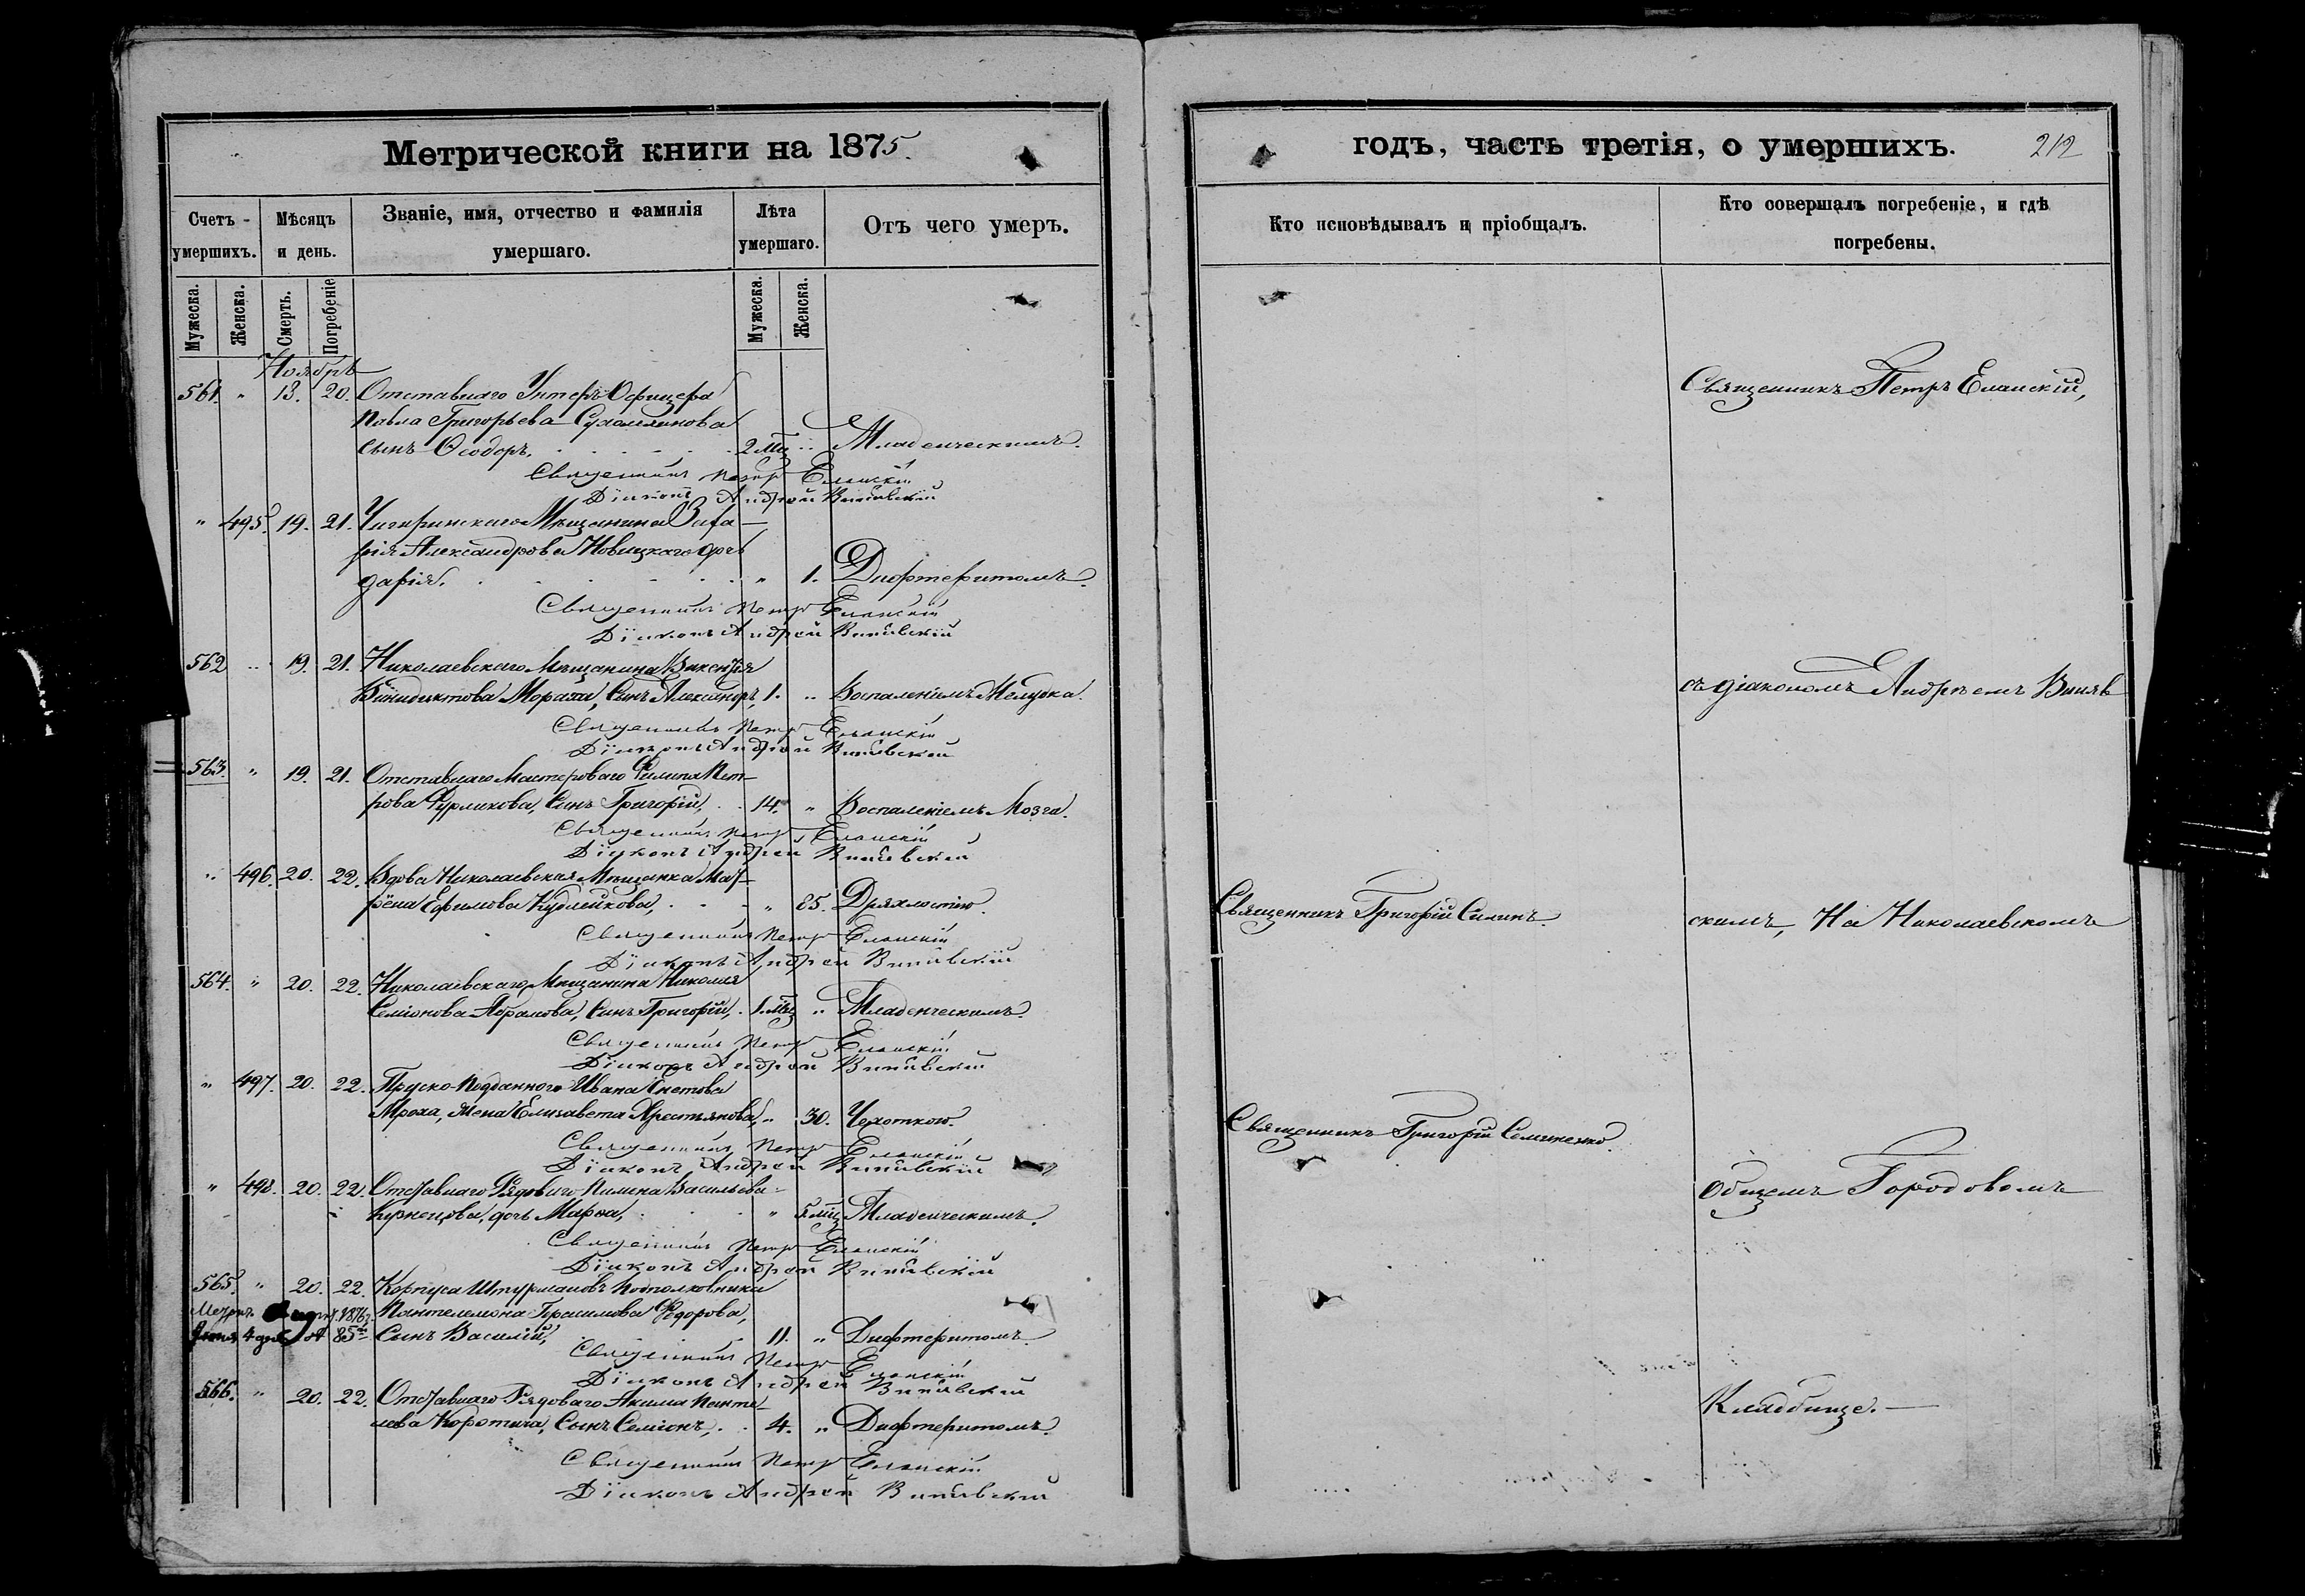 Метрической книги на 1875.
Счетъ умершихъ.
Мѣсяцъ и день.
Званіе, имя, отчество и фамилія умершаго.
Лѣта умершаго.
Отъ чего умеръ.
Мужеска.
Женска.
Смерть.
Погребеніе
Мужеска.
Женска.
Ноябрь
561. " 18. 20. Отставнаго Унтеръ Офицера
Павла Григорьева Сухомлинова
сынъ Ѳеодоръ, 2 мц " Младенческимъ.
Священникъ Петръ Еланскій
Діаконъ Андрей Винявскій
" 495. 19. 21. Чигиринскаго Мѣщанина Заха-
рія Александрова Новицкаго дочь
Дарія. " 1. Дифтеритомъ.
Священникъ Петръ Еланскій
Діаконъ Андрей Винявскій
562 " 19. 21. Николаевскаго Мѣщанина Викентія
Бенидиктова Мораза, Сынъ Александръ, 1. " Воспаленіемъ Желудка.
Священникъ Петръ Еланскій
Діаконъ Андрей Винявскій
563. " 19. 21. Отставнаго Мастероваго Филипа Пет-
рова Фурликова, Сынъ Григорій, 14. " Воспаленіемъ Мозга.
Священникъ Петръ Еланскій
Діаконъ Андрей Винявскій
" 496. 20. 22. Вдова Николаевская Мѣщанка Мат-
рёна Ефимова Кудлейкова, " 85. Дряхлостію.
Священникъ Петръ Еланскій
Діаконъ Андрей Винявскій
564. " 20. 22. Николаевскаго Мѣщанина Николая
Семіонова Абрамова, Сынъ Григорій, 1. мц " Младенческимъ.
Священникъ Петръ Еланскій
Діаконъ Андрей Винявскій
" 497. 20. 22. Пруско-Подданного Ивана
Мроха, Жена Елизавета Хрестьянова, " 30. Чахоткою.
Священникъ Петръ Еланскій
Діаконъ Андрей Винявскій
" 498. 20. 22. Отставнаго Рядоваго Пимена Васильева
Кузнецова, дочь Марѳа, " 5 мц Младенческимъ.
Священникъ Петръ Еланскій
Діаконъ Андрей Винявскій
565. " 20. 22. Корпуса Штурмановъ Подполковника
1876 г. Пантелемона Герасимова Федорова,
85 Сынъ Василій, 11. " Дифтеритомъ.
Священникъ Петръ Еланскій
Діаконъ Андрей Винявскій
566. " 20. 22. Отставнаго Рядоваго Акима Панте-
лева Коротича, Сынъ Семіонъ, 4. " Дифтеритомъ.
Священникъ Петръ Еланскій
Діаконъ Андрей Винявскій
годъ, часть третія, о умершихъ. 212
Кто исповѣдывалъ и пріобщалъ.
Кто совершалъ погребеніе, и гдѣ погребены.
Священникъ Петръ Еланскій,
съ діакономъ Андреемъ Виняв
Священникъ Григорій Силинъ.
скимъ, На Николаевскомъ
Священникъ Григорій Семененко.
Общемъ Городовомъ
Кладбище.